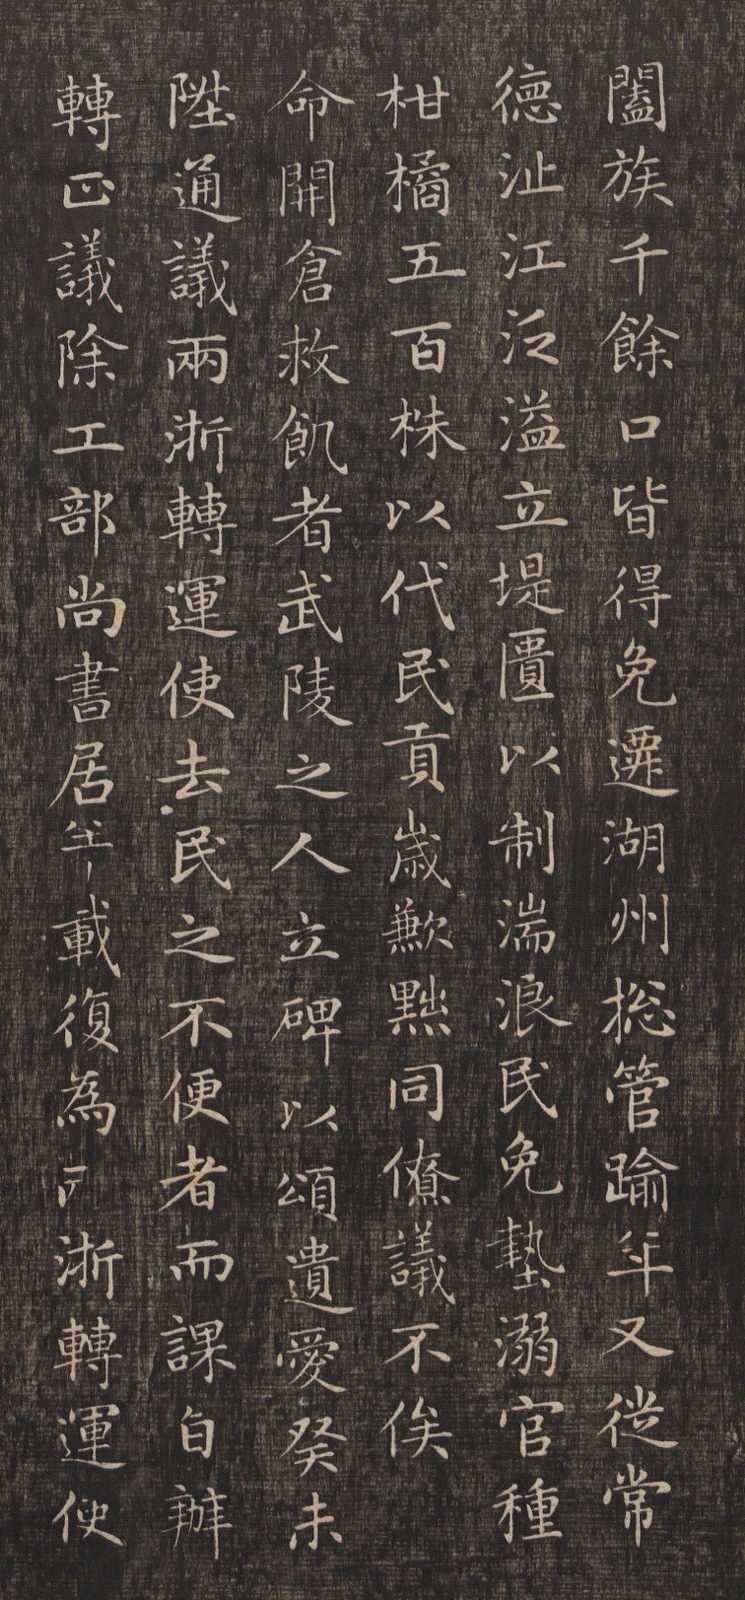 闔族千餘口皆得免遷湖州総管踰年又從常
德沚江泛溢立堤匽以制湍浪民免墊溺官種
柑橘五百株以代民貢歲歉黙同僚議不俟
命開倉救飢者武陵之人立碑以頌遺愛癸未
陞通議兩浙轉運使去民之不便者而課自辦
轉正議除工部尚書居半載復為浙轉運使